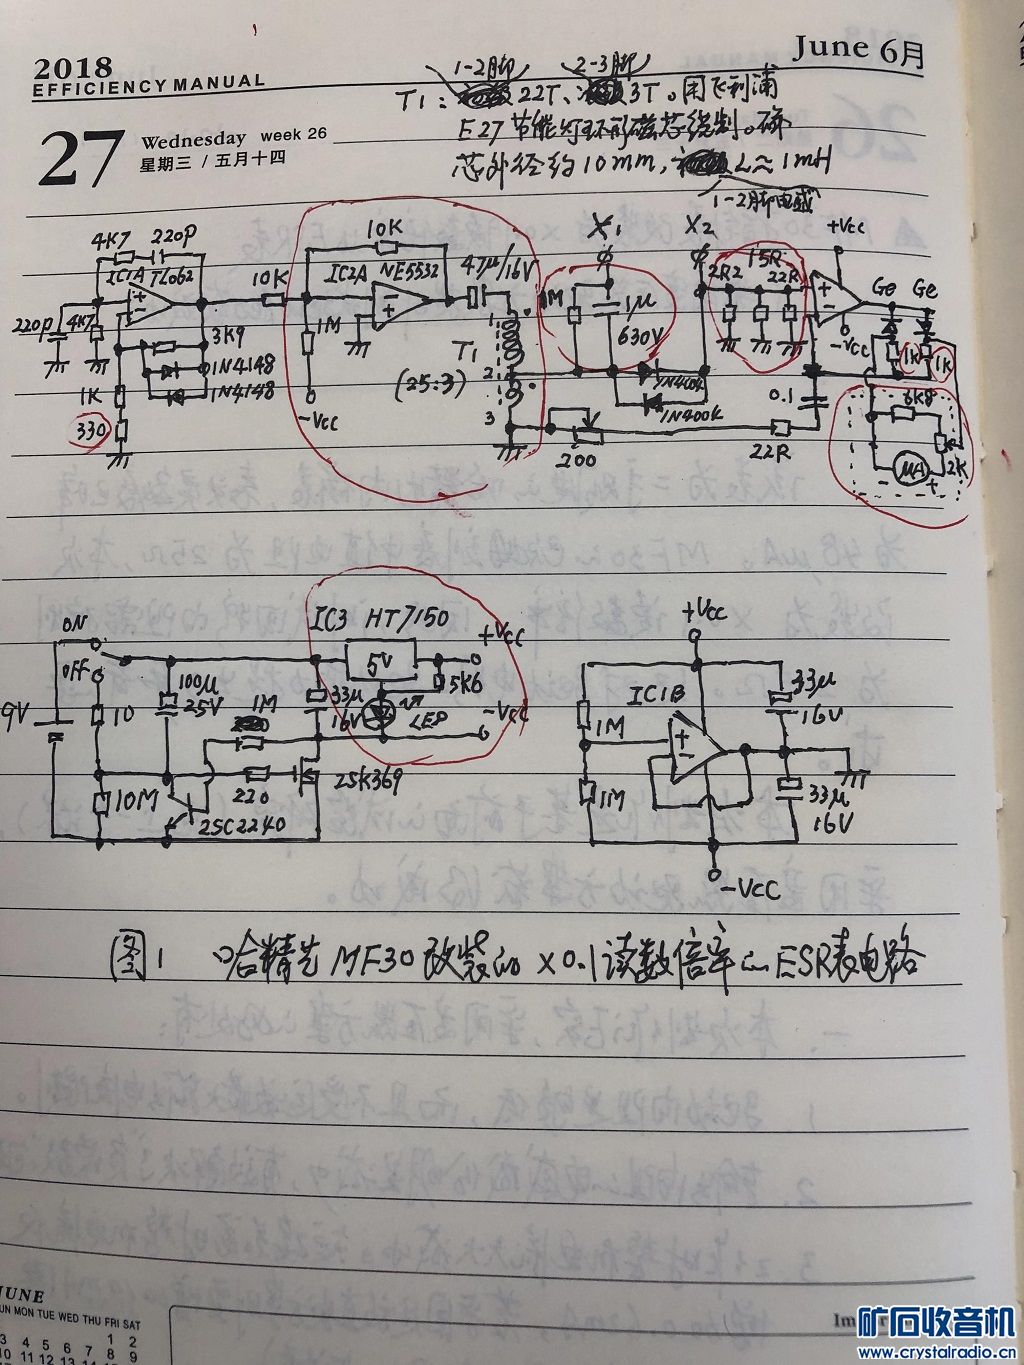 2018
EFFICIENCY MANUAL
June 6月
27
Wednesday week 26
星期三 / 五月十四
1-2脚 2-3脚
T1: 22T、3T。用飞利浦
E27节能灯环形磁芯绕制。磁
芯外径约10mm, L≈1mH
1-2脚电感
4K7 220P
IC1A TL062
220P
4K7
3K9
1N4148
1N4148
1K
330
10K
10K
IC2A NE5532
1M
-Vcc
47μ/16V
1
T1
2
(25:3)
3
X1
X2
1M
1μ
630V
1N400X
1N400X
200
22R
2R2
15R
22R
+Vcc
-Vcc
0.1
Ge Ge
1K
1K
6K8
2K
μA
+
ON
OFF
9V
10
100μ
25V
1M
10M
220
2SC2240
2SK369
33μ
16V
IC3 HT7150
5V
+Vcc
5K6
LED
-Vcc
+Vcc
1M
1M
IC1B
33μ
16V
33μ
16V
-Vcc
图1 哈精先MF30改装的×0.1读数倍率的ESR表电路
JUNE
SUN MON TUE WED THU FRI SAT
1 2
3 4 5 6 7 8 9
10 11 12 13 14 15 16
矿石收音机
www.crystalradio.cn